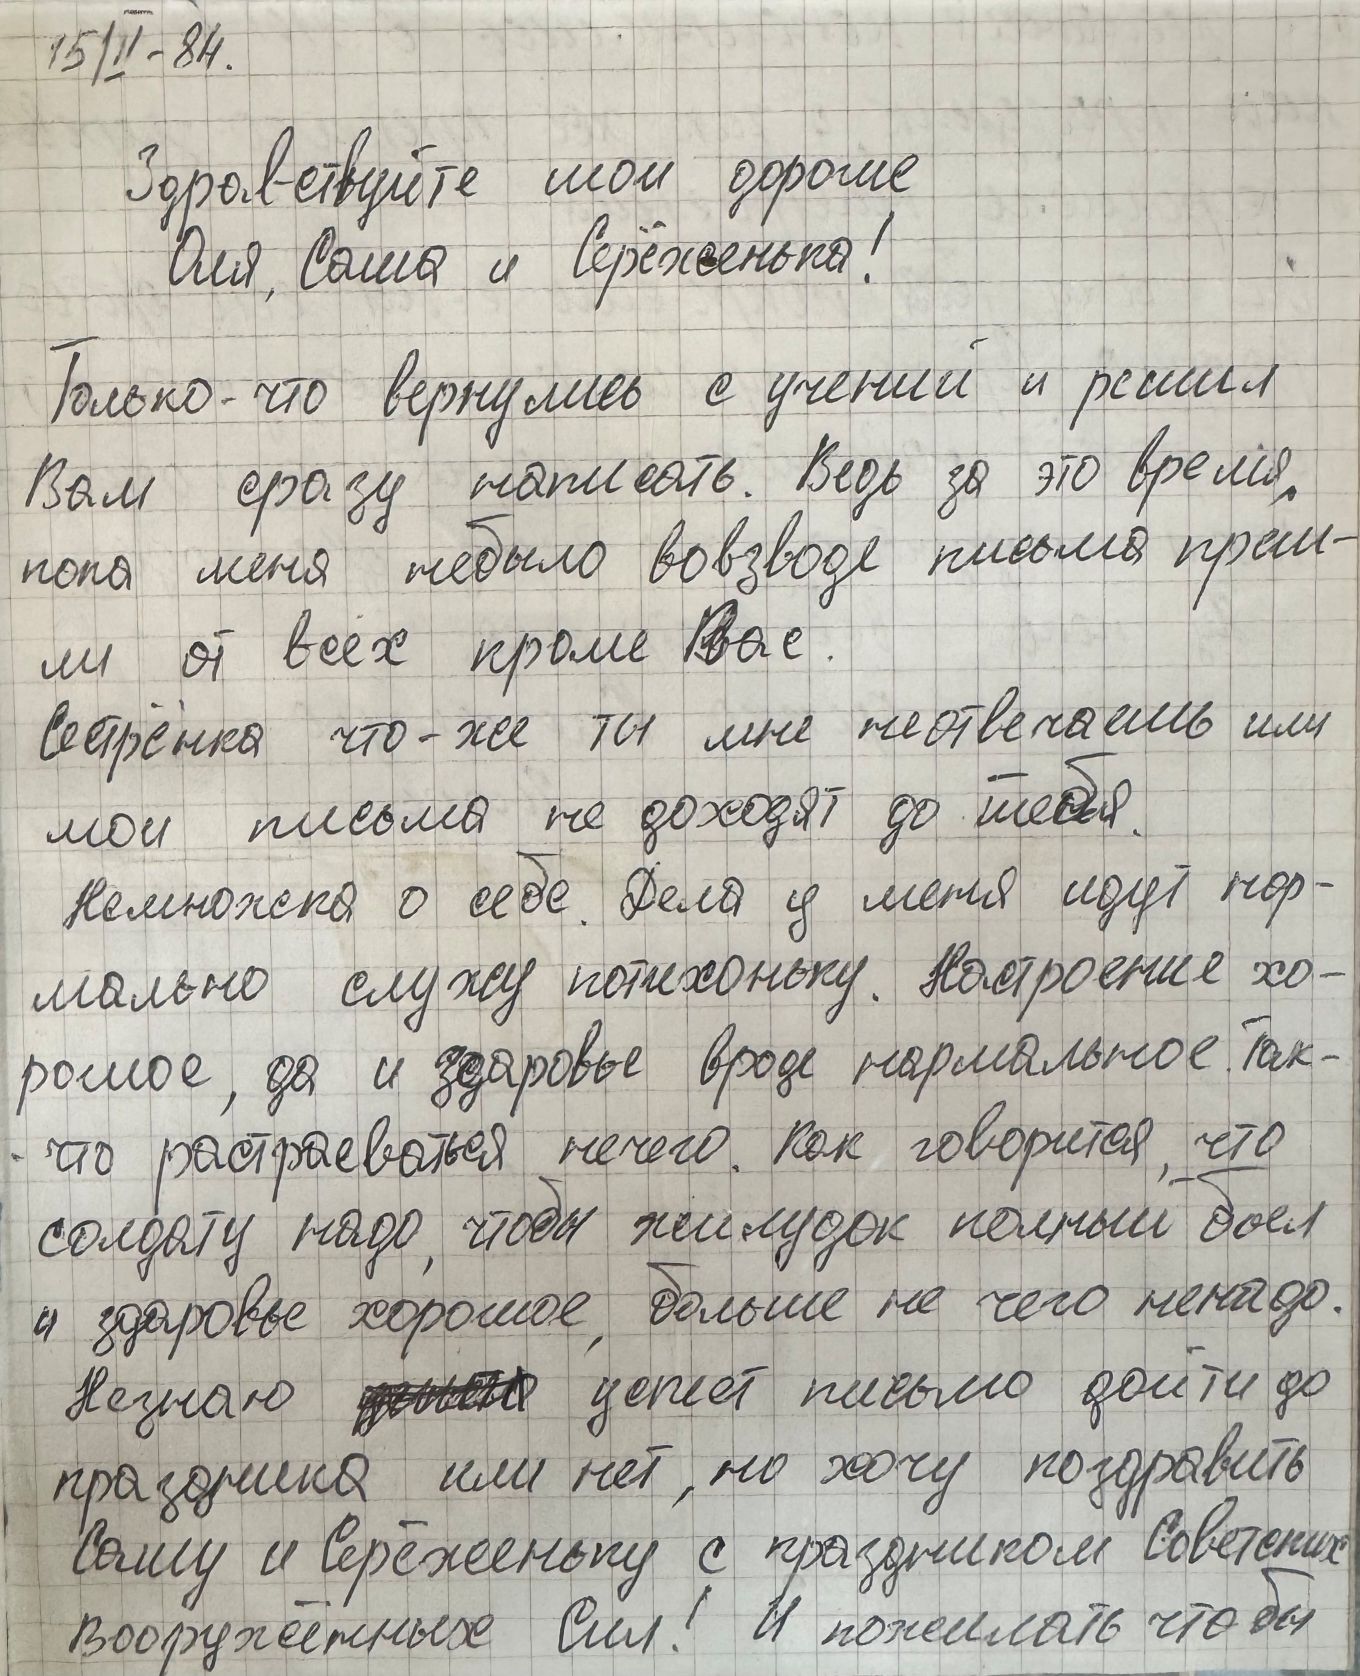 15/II-84.
Здравствуйте мои дорогие
Оля, Саша и Серёженька!
Только-что вернулись с учений и решил
Вам сразу написать. Ведь за это время,
пока меня небыло вовзводе письма приш-
ли от всех кроме Вас.
Сестрёнка что-же ты мне неотвечаешь или
мои письма не доходят до тебя.
Немножска о себе. Дела у меня идут нор-
мально служу потихоньку. Настроение хо-
рошое, да и здаровье вроде нармальное. Так-
-что растраеваться нечего. Как говорится, что
солдату надо, чтобы жилудок полный был
и здаровье хорошое, больше не чего ненадо.
Незнаю успеет письмо дойти до
праздника или нет, но хочу поздравить
Сашу и Серёженьку с праздником Советских
Вооружённых Сил! И пожилать что бы